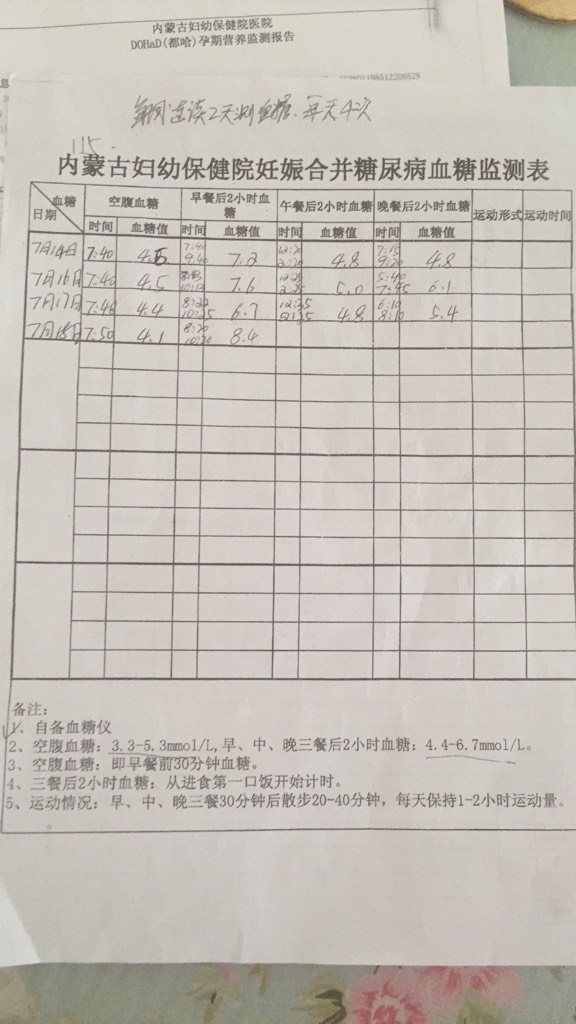 内蒙古妇幼保健院医院
DOHaD(都哈)孕期营养监测报告
息
每周连读2天测血糖、每天4次
115.
内蒙古妇幼保健院妊娠合并糖尿病血糖监测表
血糖 日期 空腹血糖 早餐后2小时血糖 午餐后2小时血糖 晚餐后2小时血糖 运动形式 运动时间
时间 血糖值 时间 血糖值 时间 血糖值 时间 血糖值
7月14日 7:40 4.5 7:40 9:40 7.2 4.8 7:15 4.8
7月16日 7:40 4.5 7.6 5.0 5:40 7:45 6.1
7月17日 7:48 4.4 8:22 10:25 6.7 12:35 4.8 6:10 8:10 5.4
7月18日 7:50 4.1 8:20 10:20 8.4
备注:
1、自备血糖仪
2、空腹血糖：3.3-5.3mmol/L,早、中、晚三餐后2小时血糖：4.4-6.7mmol/L。
3、空腹血糖：即早餐前30分钟血糖。
4、三餐后2小时血糖：从进食第一口饭开始计时。
5、运动情况：早、中、晚三餐30分钟后散步20-40分钟，每天保持1-2小时运动量。